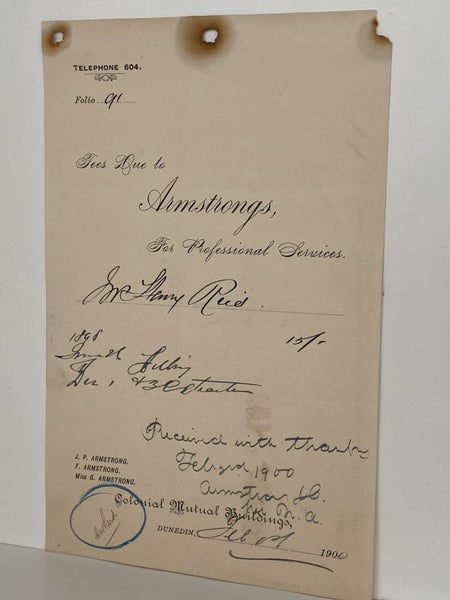 TELEPHONE 604.
Folio 91
Fees Due to
Armstrongs,
For Professional Services.
Mr Henry Reid
1898 15/-
Filling
Dec 1
Received with thanks
Feb 2nd 1900
J. P. ARMSTRONG.
F. ARMSTRONG.
Miss G. ARMSTRONG.
Colonial Mutual Buildings,
DUNEDIN, Feb 1st 1900